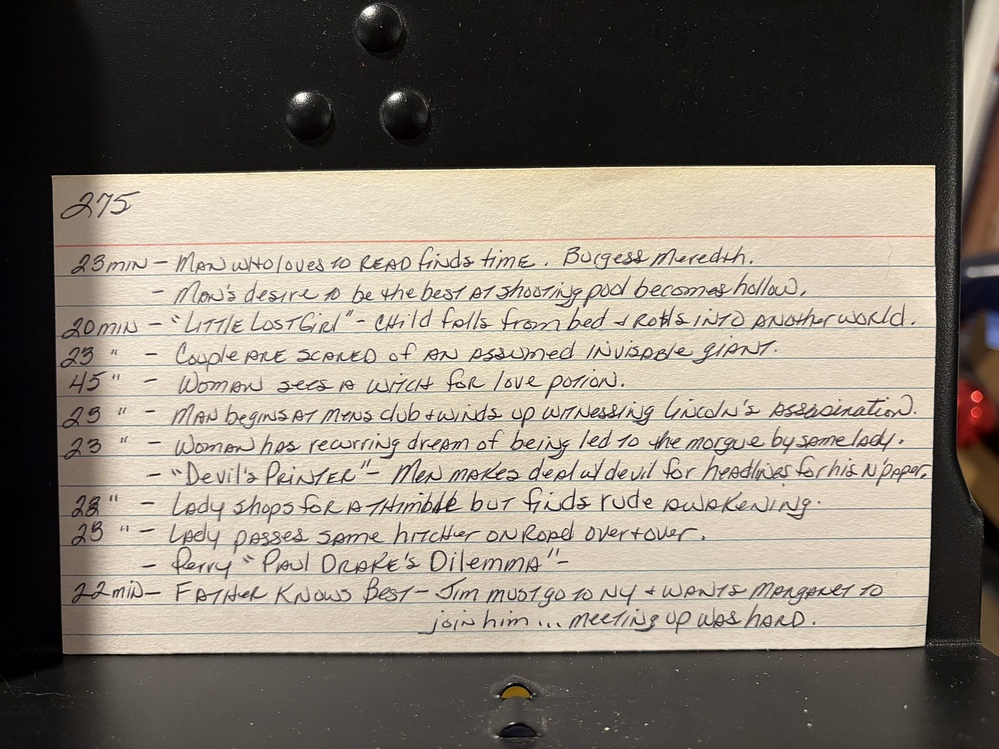 275
23 min - Man who loves to read finds time. Burgess Meredith.
- Man's desire to be the best at shooting pool becomes hollow.
20 min - "Little Lost Girl" - child falls from bed + rolls into another world.
23 " - Couple are scared of an assumed invisable giant.
45 " - Woman sees a witch for love potion.
23 " - Man begins at mens club + winds up witnessing Lincoln's assasination.
23 " - Woman has recurring dream of being led to the morgue by same lady.
- "Devil's Printer" - Men makes deal w/ devil for headlines for his N'paper.
28 " - Lady shops for a thimble but finds rude awakening.
23 " - Lady passes same hitcher on road over + over.
- Perry "Paul Drake's Dilemma" -
22 min - Father Knows Best - Jim must go to NY + wants Margaret to
join him ... meeting up was hard.